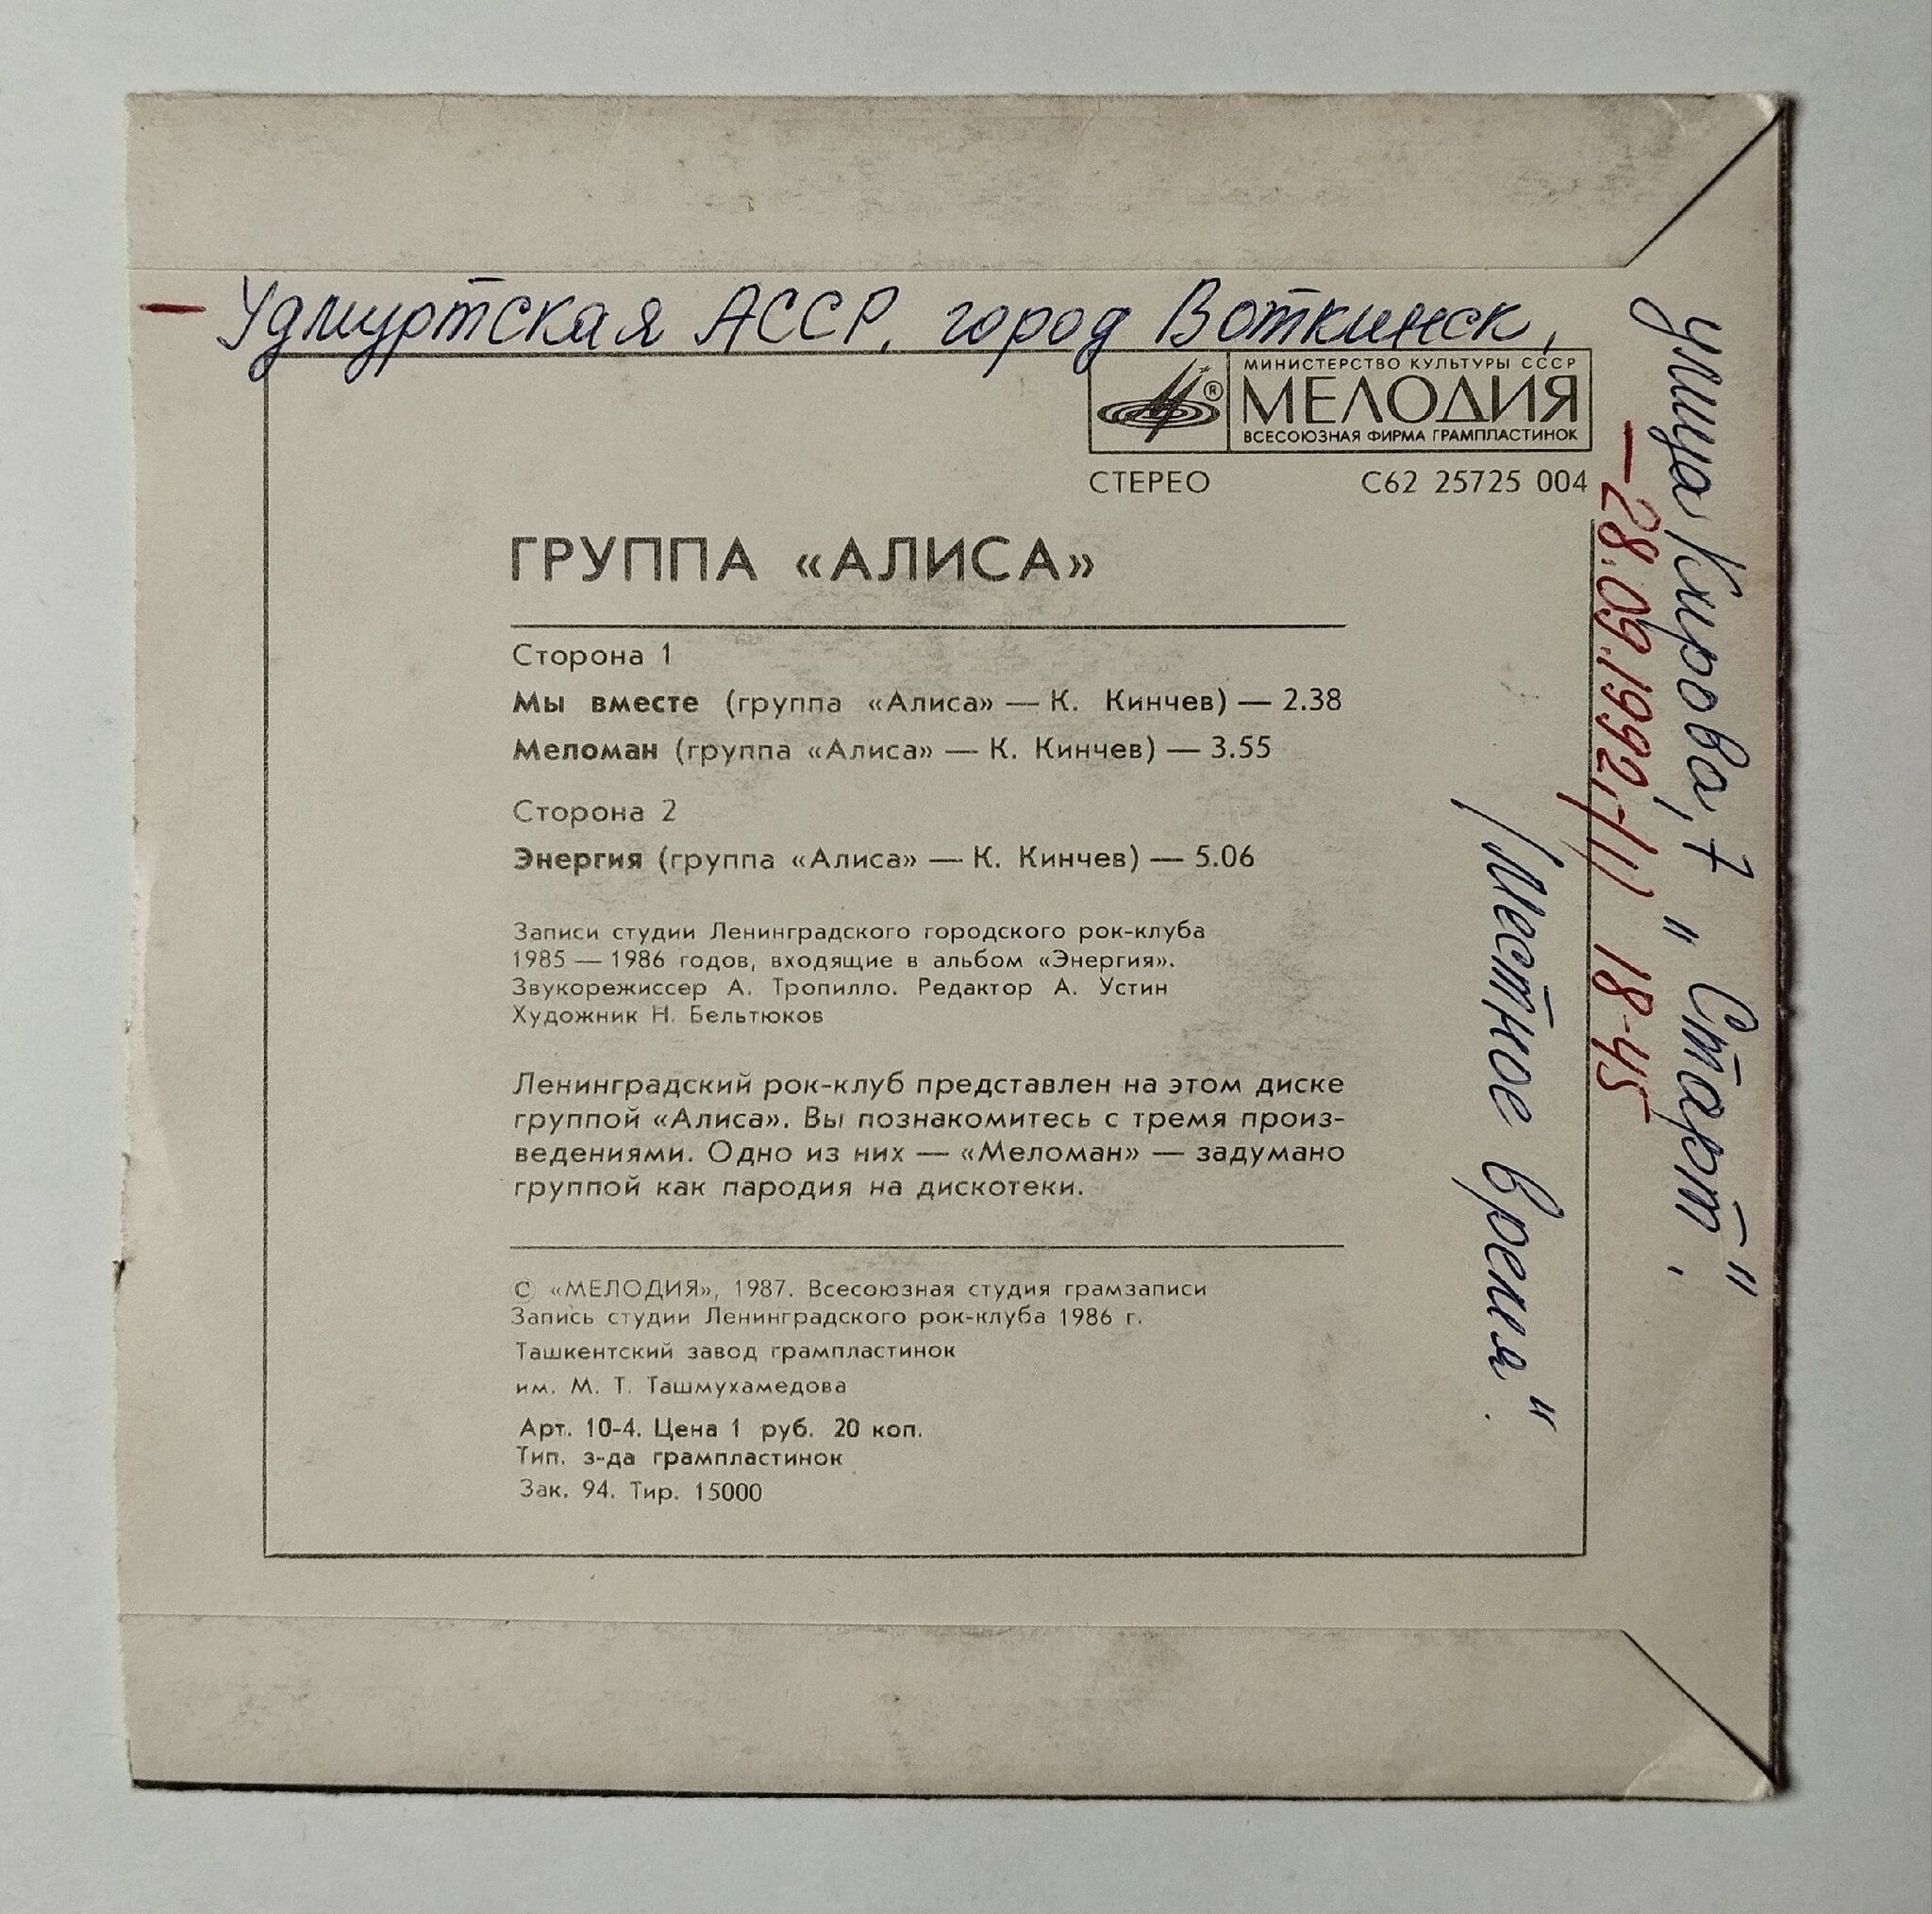 — Удмуртская АССР, город Воткинск,
улица Кирова, 7 "Старт".
— 28.09.1992, 18-45
/Местное время".
МИНИСТЕРСТВО КУЛЬТУРЫ СССР
МЕЛОДИЯ
®
ВСЕСОЮЗНАЯ ФИРМА ГРАМПЛАСТИНОК
СТЕРЕО С62 25725 004
ГРУППА «АЛИСА»
Сторона 1
Мы вместе (группа «Алиса» — К. Кинчев) — 2.38
Меломан (группа «Алиса» — К. Кинчев) — 3.55
Сторона 2
Энергия (группа «Алиса» — К. Кинчев) — 5.06
Записи студии Ленинградского городского рок-клуба
1985 — 1986 годов, входящие в альбом «Энергия».
Звукорежиссер А. Тропилло. Редактор А. Устин
Художник Н. Бельтюков
Ленинградский рок-клуб представлен на этом диске
группой «Алиса». Вы познакомитесь с тремя произ-
ведениями. Одно из них — «Меломан» — задумано
группой как пародия на дискотеки.
© «МЕЛОДИЯ», 1987. Всесоюзная студия грамзаписи
Запись студии Ленинградского рок-клуба 1986 г.
Ташкентский завод грампластинок
им. М. Т. Ташмухамедова
Арт. 10-4. Цена 1 руб. 20 коп.
Тип. з-да грампластинок
Зак. 94. Тир. 15000